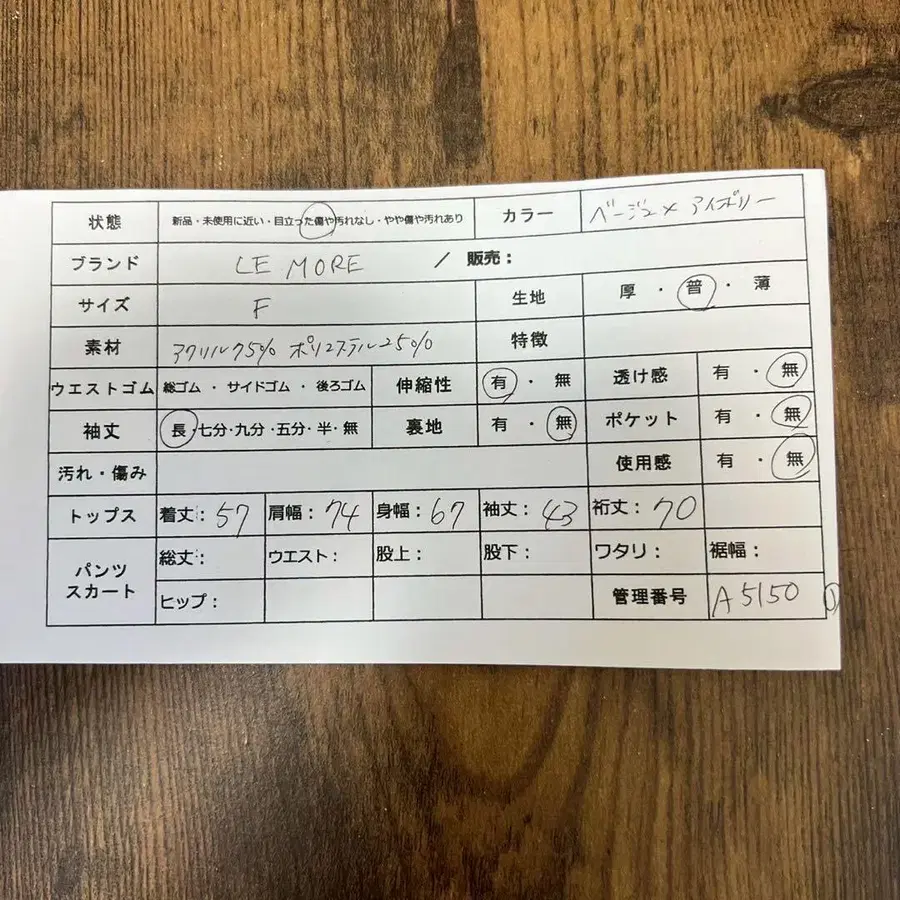 状態 新品・未使用に近い・目立った傷や汚れなし・やや傷や汚れあり カラー ベージュ×アイボリー
ブランド LE MORE / 販売：
サイズ F 生地 厚・普・薄
素材 アクリル75% ポリエステル25% 特徴
ウエストゴム 総ゴム・サイドゴム・後ろゴム 伸縮性 有・無 透け感 有・無
袖丈 長・七分・九分・五分・半・無 裏地 有・無 ポケット 有・無
汚れ・傷み 使用感 有・無
トップス 着丈：57 肩幅：74 身幅：67 袖丈：43 裄丈：70
パンツ スカート 総丈： ウエスト： 股上： 股下： ワタリ： 裾幅：
ヒップ： 管理番号 A5150